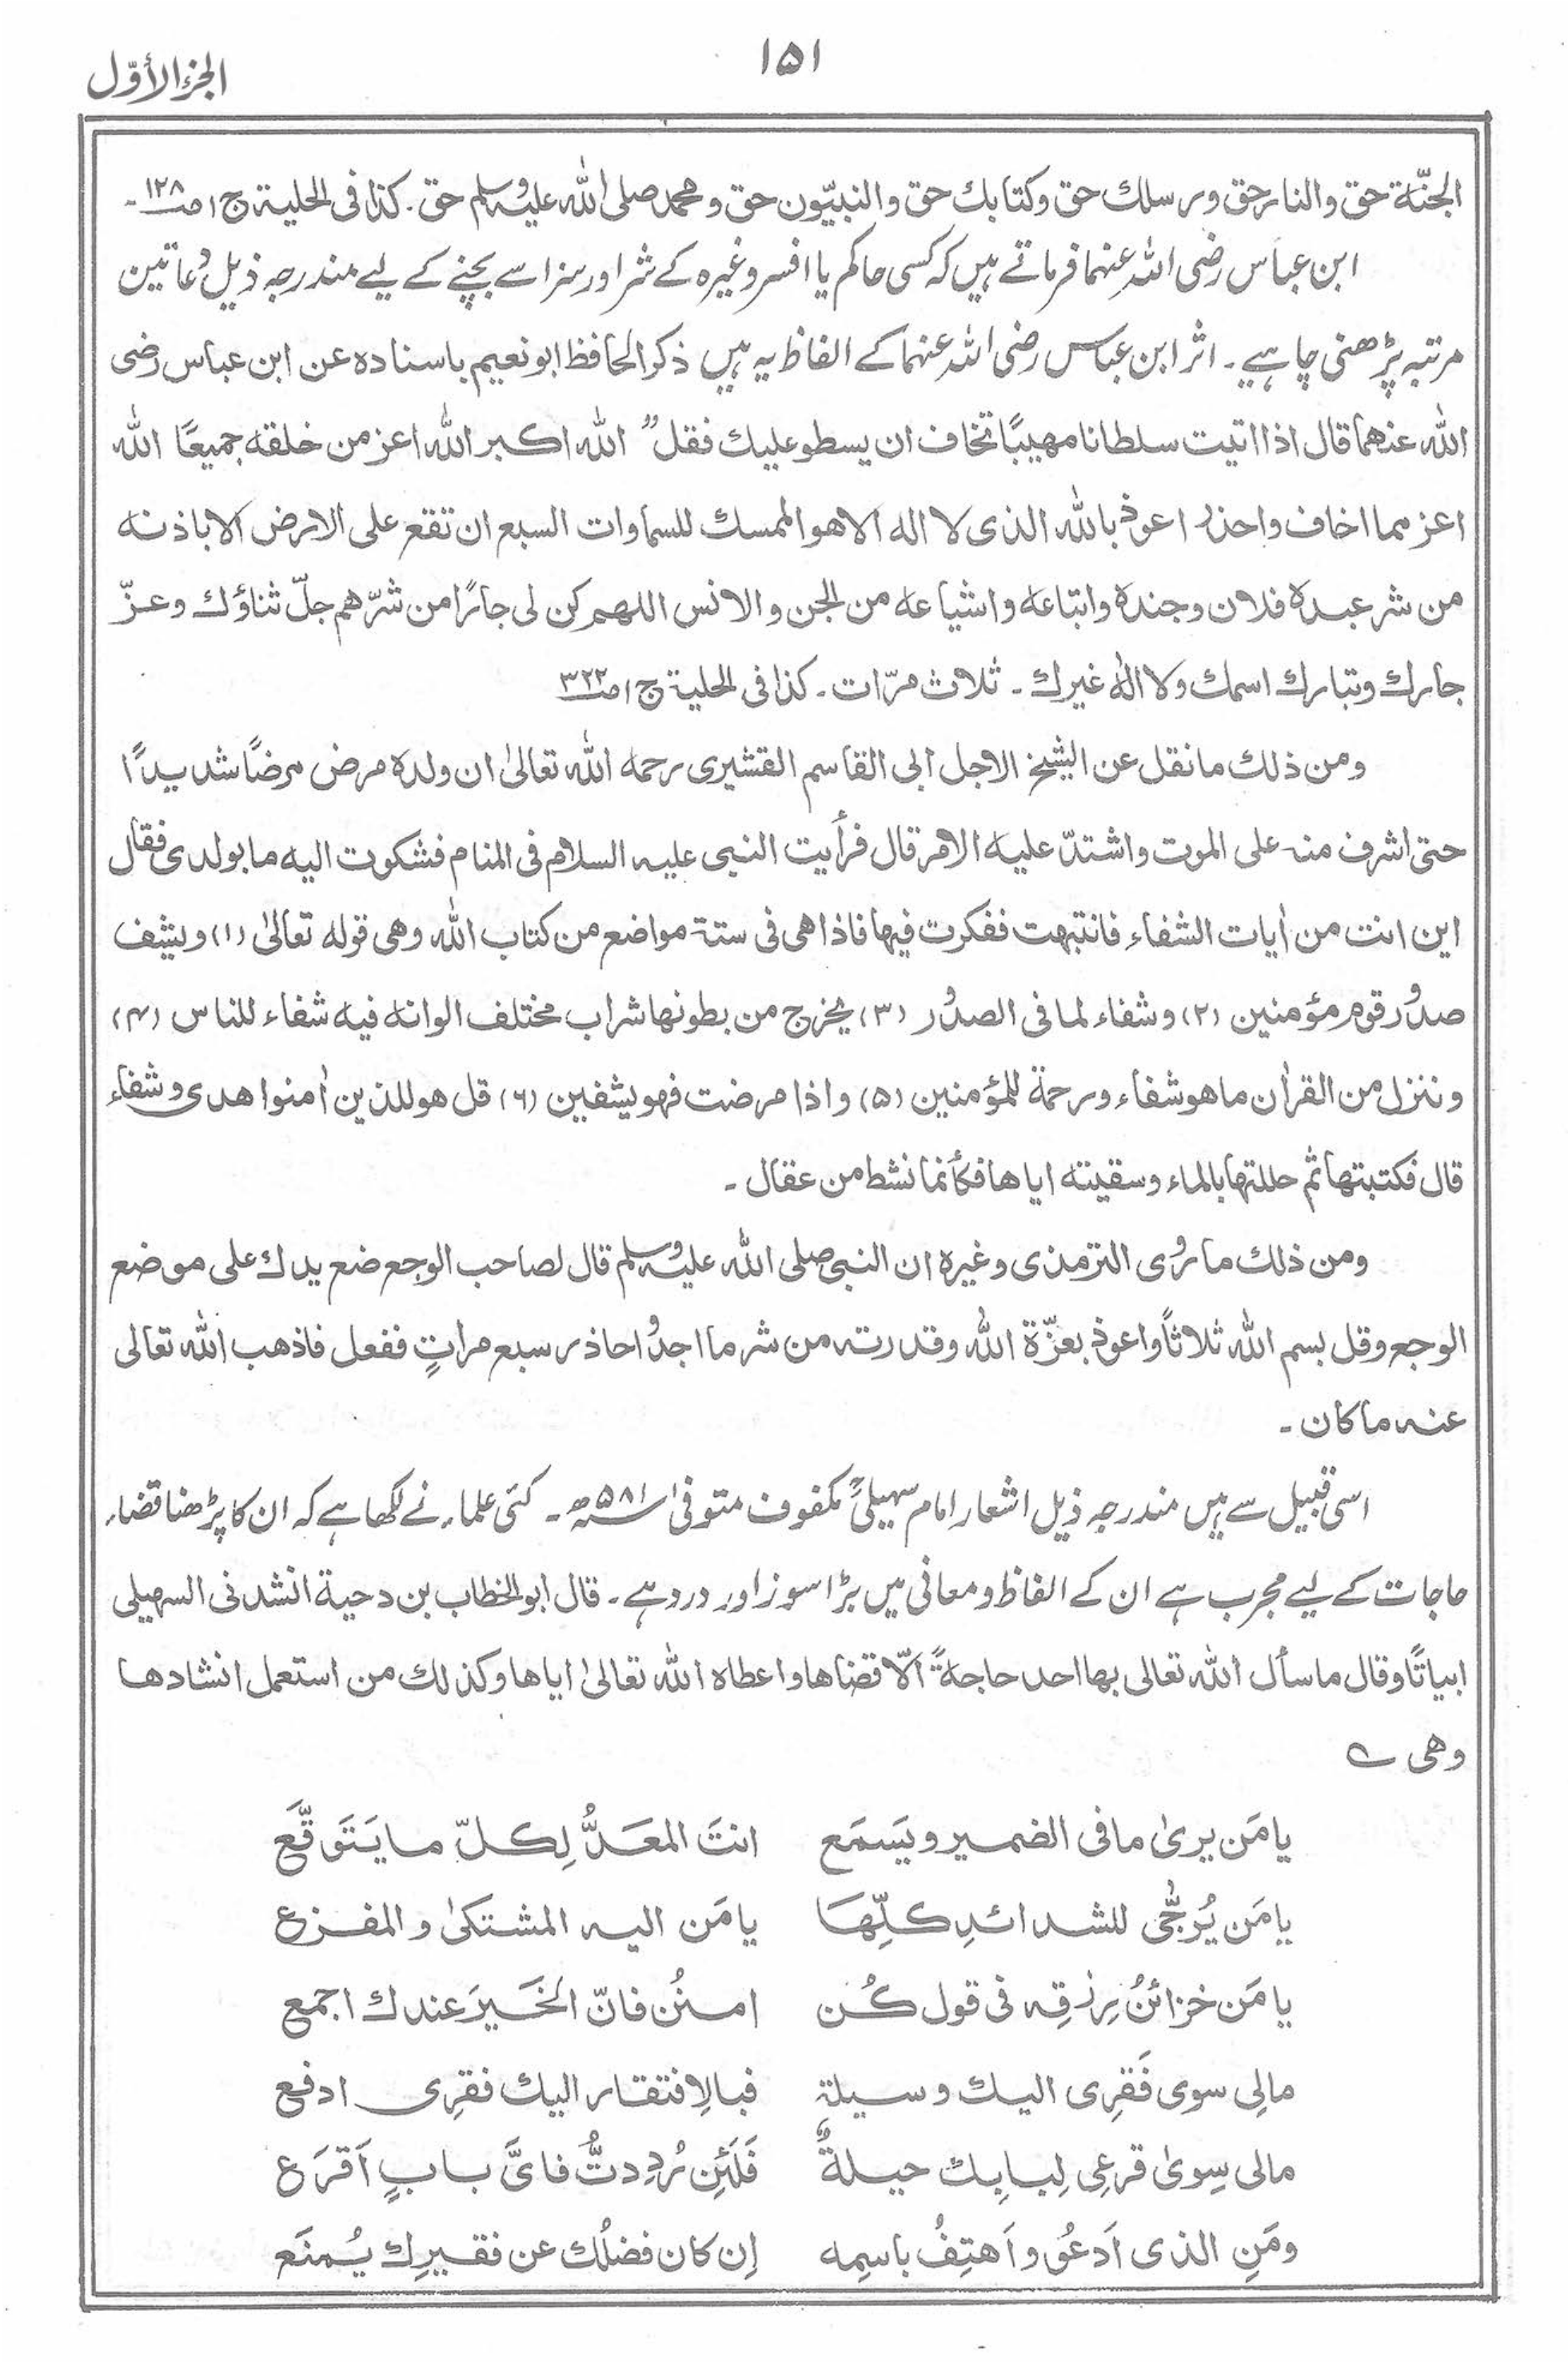 الجزء الأوّل
۱۵۱
الجنّة حق والنار حق ورسلك حق وكتابك حق والنبيّون حق ومحمد صلى الله عليه وسلم حق۔ كذا فى الحلية ج ۱ صـ۱۲۸۔
ابن عباس رضی اللہ عنہما فرماتے ہیں کہ کسی حاکم یا افسر وغیرہ کے شر اور سزا سے بچنے کے لیے مندرجہ ذیل دُعا تین
مرتبہ پڑھنی چاہیے۔ اثر ابن عباس رضی اللہ عنہما کے الفاظ یہ ہیں ذكر الحافظ ابو نعيم باسناده عن ابن عباس رضى
الله عنهما قال اذا اتيت سلطانا مهيبًا تخاف ان يسطو عليك فقل ” الله اكبر الله اعز من خلقه جميعًا الله
اعز مما اخاف واحذر اعوذ بالله الذى لا اله الا هو الممسك للسماوات السبع ان تقع على الارض الا باذنه
من شر عبده فلان وجنده واتباعه واشياعه من الجن والانس اللهم كن لى جارًا من شرّهم جلّ ثناؤك وعزّ
جارك وتبارك اسمك ولا اله غيرك ۔ ثلاث مرّات ۔ كذا فى الحلية ج ۱ صـ۳۲۲
ومن ذلك ما نقل عن الشيخ الاجل ابى القاسم القشيرى رحمه الله تعالىٰ ان ولده مرض مرضًا شديدًا
حتى اشرف منه على الموت واشتدّ عليه الامر قال فرأيت النبى عليه السلام فى المنام فشكوت اليه ما بولدى فقال
اين انت من اٰيات الشفاء فانتبهت ففكرت فيها فاذا هى فى ستة مواضع من كتاب الله وهى قوله تعالىٰ (۱) ويشف
صدُور قوم مؤمنين (۲) وشفاء لما فى الصدُور (۳) يخرج من بطونها شراب مختلف الوانه فيه شفاء للناس (۴)
وننزل من القراٰن ما هو شفاء ورحمة للمؤمنين (۵) واذا مرضت فهو يشفين (۶) قل هو للذين اٰمنوا هدى وشفاء
قال فكتبتها ثم حللتها بالماء وسقيته اياها فكأنما نشط من عقال ۔
ومن ذلك ما رُوى الترمذى وغيره ان النبى صلى الله عليه وسلم قال لصاحب الوجع ضع يدك على موضع
الوجع وقل بسم الله ثلاثًا واعوذ بعزّة الله وقدرته من شر ما اجدُ احاذر سبع مراتٍ ففعل فاذهب الله تعالى
عنه ما كان ۔
اسی قبیل سے ہیں مندرجہ ذیل اشعار امام سہیلیؒ مکفوف متوفیٰ ۵۸۱ھ ۔ کئی علماء نے لکھا ہے کہ ان کا پڑھنا قضاء
حاجات کے لیے مجرب ہے ان کے الفاظ و معانی میں بڑا سوز اور درد ہے۔ قال ابو الخطاب بن دحية انشدنى السهيلى
ابياتًا وقال ما سأل الله تعالى بها احد حاجةً الّا قضاها واعطاه الله تعالىٰ اياها وكذلك من استعمل انشادها
وهى ؎
يا مَن يرىٰ ما فى الضمير ويَسمَع انتَ المعَدُّ لِكلّ ما يَتَوقَّع
يا مَن يُرجّٰى للشدائدِ كلِّهَا يا مَن اليه المشتكىٰ و المفزع
يا مَن خزائنُ رِزقِه فى قول كُن امنُن فانّ الخَيرَ عندك اجمع
مالِى سوى فَقرِى اليك وسيلة فبالِافتقار اليك فقرِى ادفع
مالى سِوىٰ قرعِى لِبابِك حيلةٌ فَلَئِن رُدِدتُّ فاىَّ بابٍ اَقرَع
ومَنِ الذى اَدعُو و اَهتِفُ باسِمِه اِن كان فضلُك عن فقيرِك يُمنَع